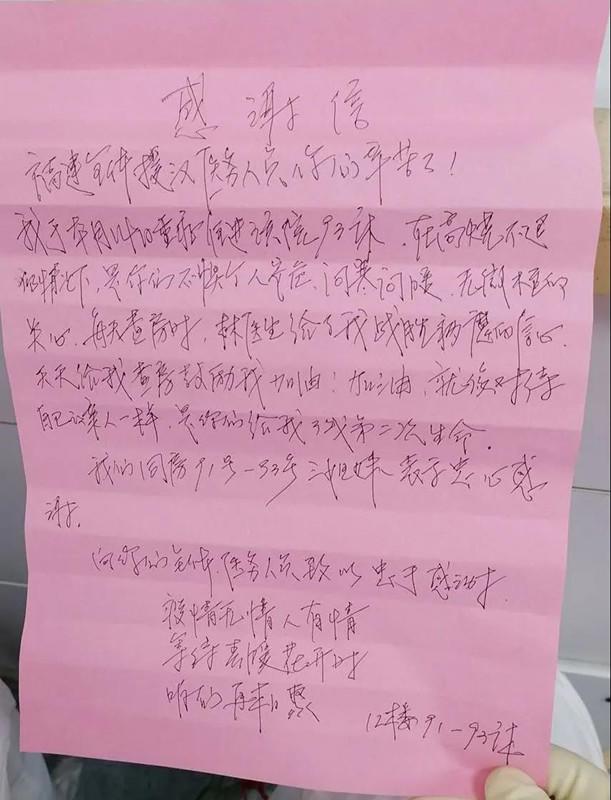 感谢信
福建全体援汉医务人员，你们辛苦了！
我于本月14日重症住进该院93床，在高烧不退
的情况下，是你们不惧个人安危，问寒问暖，无微不至的
关心，每天查房时，林医生给了我战胜病魔的信心，
天天给我查房鼓励我加油！加油，就像对待
自己家人一样，是你们给我了我第二次生命。
我们同房91号-93号三姐妹表示衷心感
谢。
向你们全体医务人员致以衷于感谢
疫情无情人有情
等待春暖花开时
咱们再来聚
12楼91-93床